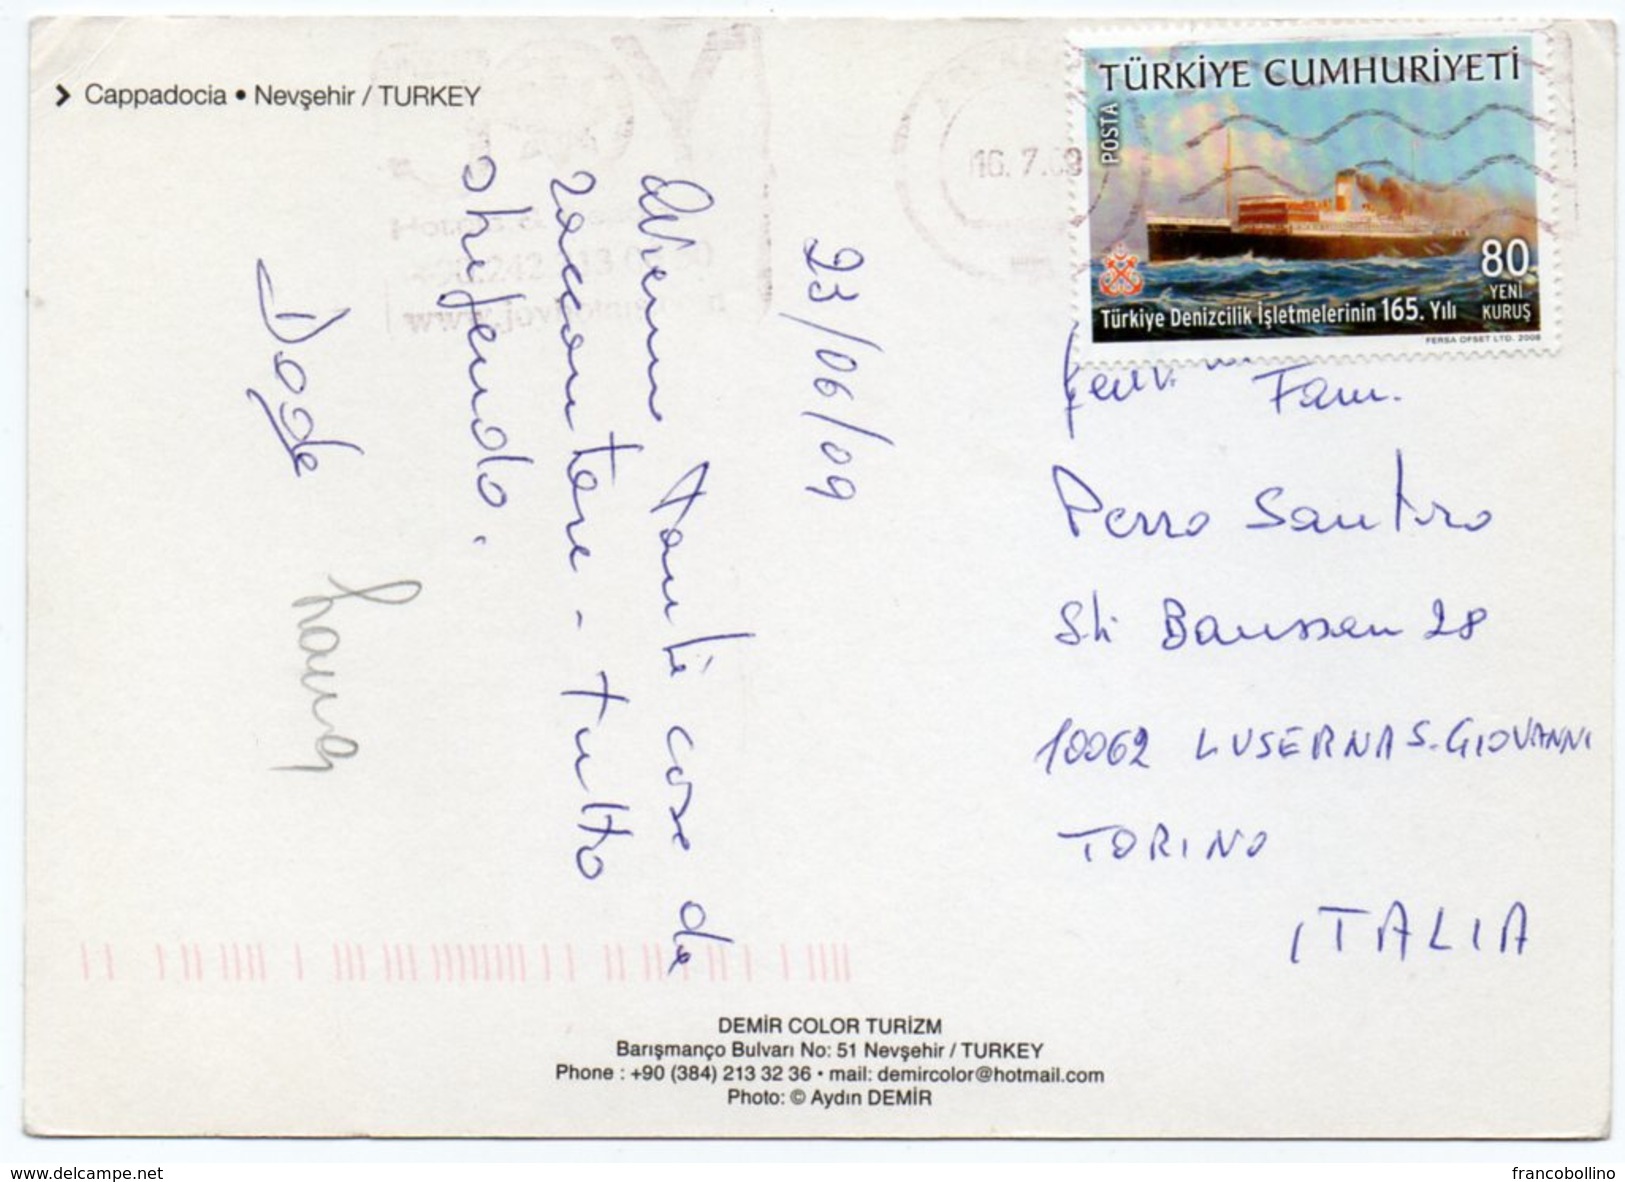 Cappadocia • Nevşehir / TURKEY
16. 7.09
TÜRKİYE CUMHURİYETİ
POSTA
80
YENİ
KURUŞ
Türkiye Denizcilik İşletmelerinin 165. Yılı
FERSA OFSET LTD. 2008
23/06/09
tante cose da
raccontare - tutto
stupendo.
Fam.
Santino
28
10062 LUSERNA S. GIOVANNI
TORINO
ITALIA
DEMİR COLOR TURİZM
Barışmanço Bulvarı No: 51 Nevşehir / TURKEY
Phone : +90 (384) 213 32 36 • mail: demircolor@hotmail.com
Photo: © Aydın DEMİR
www.delcampe.net
francobollino